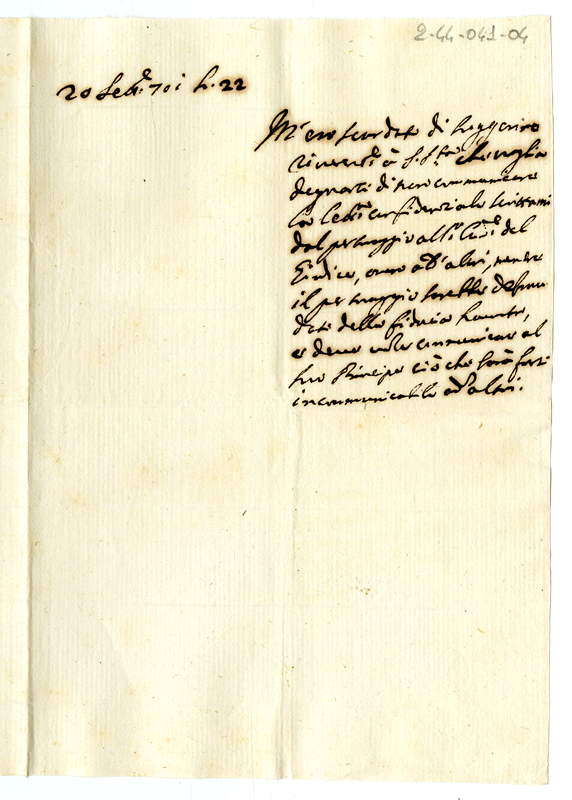 2-44-041-04
20 Sett.e 701 h. 22
M'ero scordato di suggerire
à S. S.ta che voglia
degnarsi di non communicare
la confidenziale scrittami
dal personaggio all' del
Giudice, overo ad altri, mentre
il personaggio sarebbe defrau
dato della fiducia havuta,
e deve solo communicare al
suo Principe ciò che sarà forsi
incommunicabile ad altri.